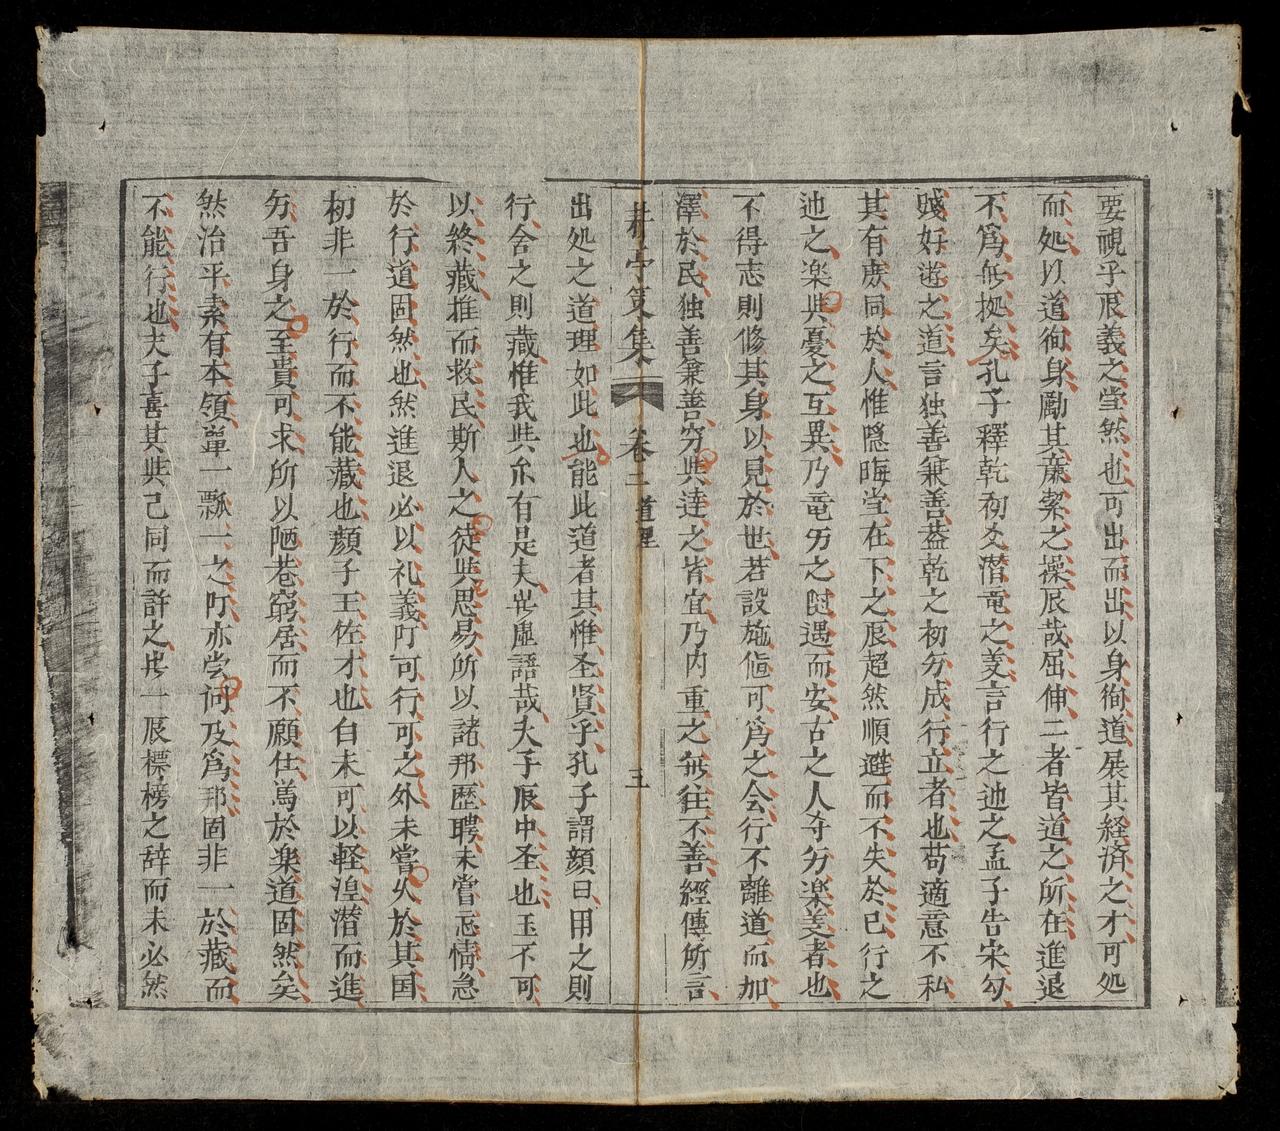 要視乎辰義之当然也可出而出以身徇道展其経済之才可処
而処以道徇身勵其廉潔之操辰哉屈伸二者皆道之所在進退
不爲無拠矣孔子釋乾初爻潛竜之义言行之迪之孟子告宋勾
踐好遊之道言独善兼善葢乾之初分成行立者也苟適意不私
其有庶同於人惟隠晦当在下之辰超然順遯而不失於已行之
迪之楽与憂之互異乃竜另之時遇而安古之人夺分楽义者也
不得志則修其身以見於世若設施值可爲之会行不離道而加
澤於民独善兼善穷与逹之皆宜乃内重之無往不善經傳所言
策集 卷二 道理 五
出処之道理如此也能此道者其惟圣贤乎孔子謂顔曰用之則
行舍之則藏惟我与尔有是夫豈虚語哉夫子辰中圣也玉不可
以終藏推而救民斯人之徒与思易所以諸邦歴聘未嘗忘情急
於行道固然也然進退必以礼義吖可行可之外未嘗久於其国
初非一於行而不能藏也顔子王佐才也白未可以軽湟潜而進
分吾身之至貴可求所以陋巷窮居而不願仕焉於楽道固然矣
然治平素有本領箪一瓢一之吖亦尝问及爲邦固非一於藏而
不能行也夫子喜其与己同而許之豈一辰標榜之辞而未必然